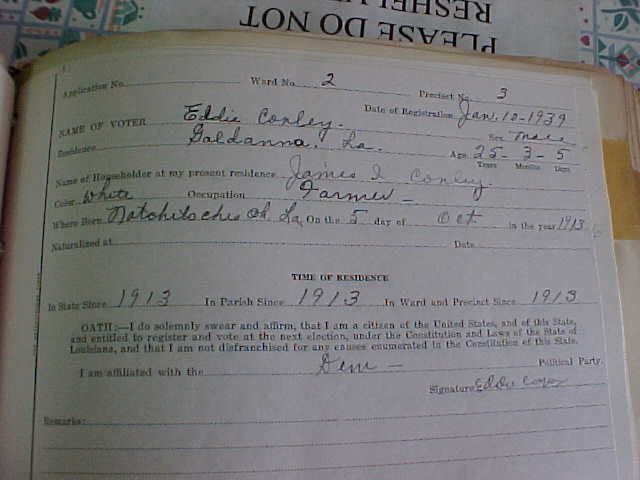 PLEASE DO NOT
RESHEL
Application No. Ward No. 2 Precinct No. 3
Date of Registration Jan. 10-1939
NAME OF VOTER Eddie Conley. Sex Male
Residence Goldanna, La. Age 25 - 3 - 5
Years Months Days
Name of Householder at my present residence James I Conley.
Color White Occupation Farmer -
Where Born Natchitoches Ph. La. On the 5 day of Oct in the year 1913
Naturalized at Date
TIME OF RESIDENCE
In State Since 1913 In Parish Since 1913 In Ward and Precinct Since 1913
OATH:—I do solemnly swear and affirm, that I am a citizen of the United States, and of this State,
and entitled to register and vote at the next election, under the Constitution and Laws of the State of
Louisiana, and that I am not disfranchised for any causes enumerated in the Constitution of this State.
I am affiliated with the Dem - Political Party.
Signature Eddie
Remarks: